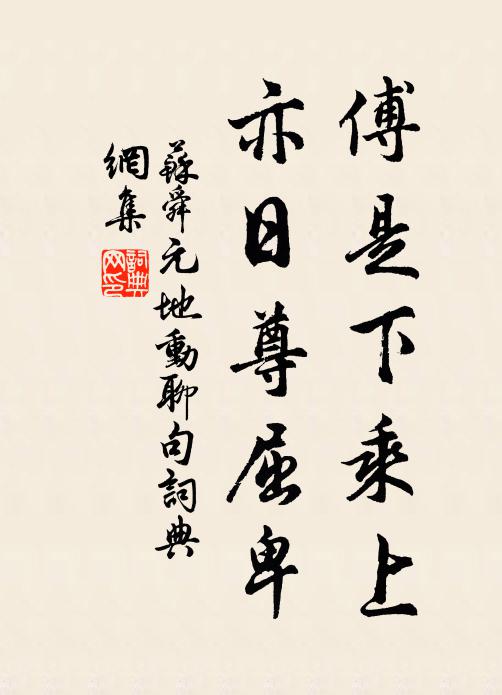 傅是下乘上
亦日尊屈卑
蘇舜元地動聊句詞典
網集
詞典網印